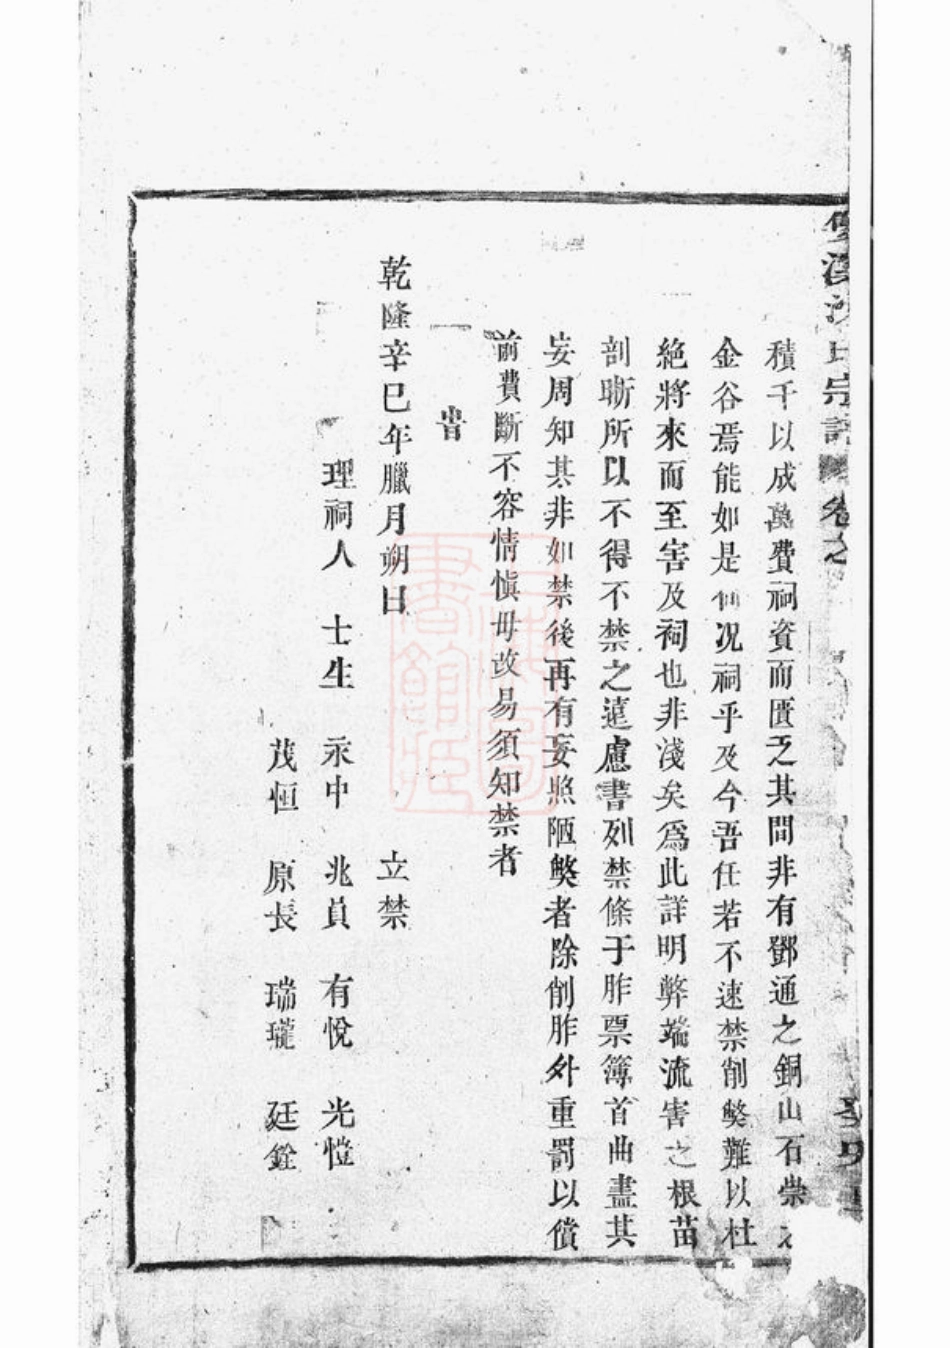 宗譜
積千以成萬費祠資而匱乏其間非有鄧通之銅山石崇之
金谷焉能如是何况祠乎及今吾任若不速禁削獘難以杜
絶將來而至害及祠也非淺矣爲此詳明弊端流害之根苗
剖晣所以不得不禁之遠慮書列禁條于胙票簿首曲盡其
妄周知其非如禁後再有妄照陋獘者除削胙外重罰以償
前費斷不容情愼毋改易須知禁者
乾隆辛巳年臘月朔日 立禁
理祠人 士生 永中 兆員 有悅 光愷
茂恒 原長 瑞瓏 廷銓